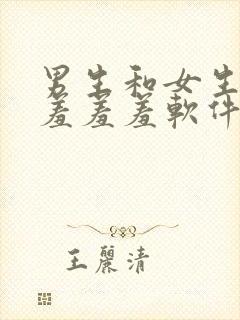 男生和女生
羞羞羞軟件
王麗清